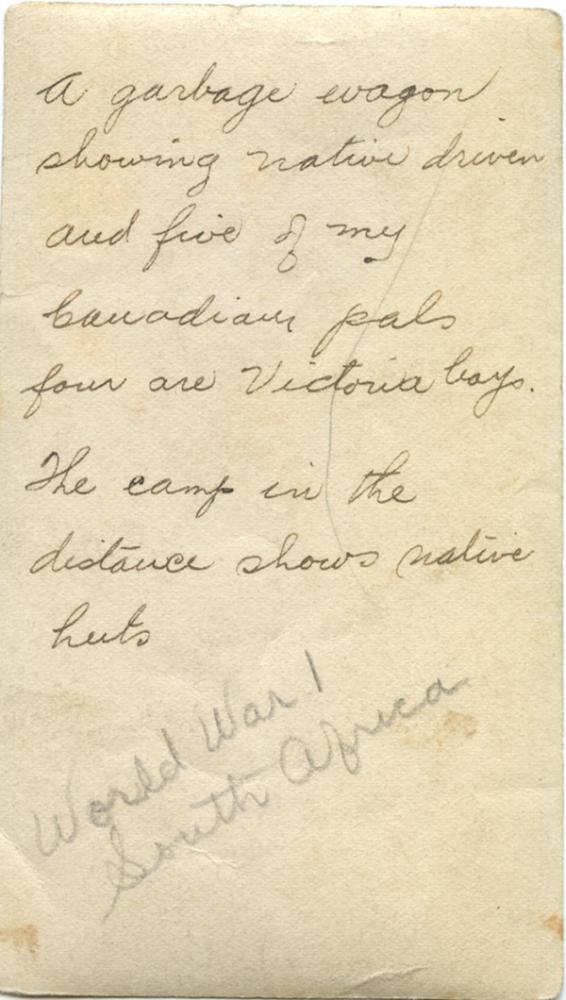 A garbage wagon
showing native driven
and five of my
Canadian pals
four are Victoria boys.
The camp in the
distance shows native
huts
World War 1
South Africa